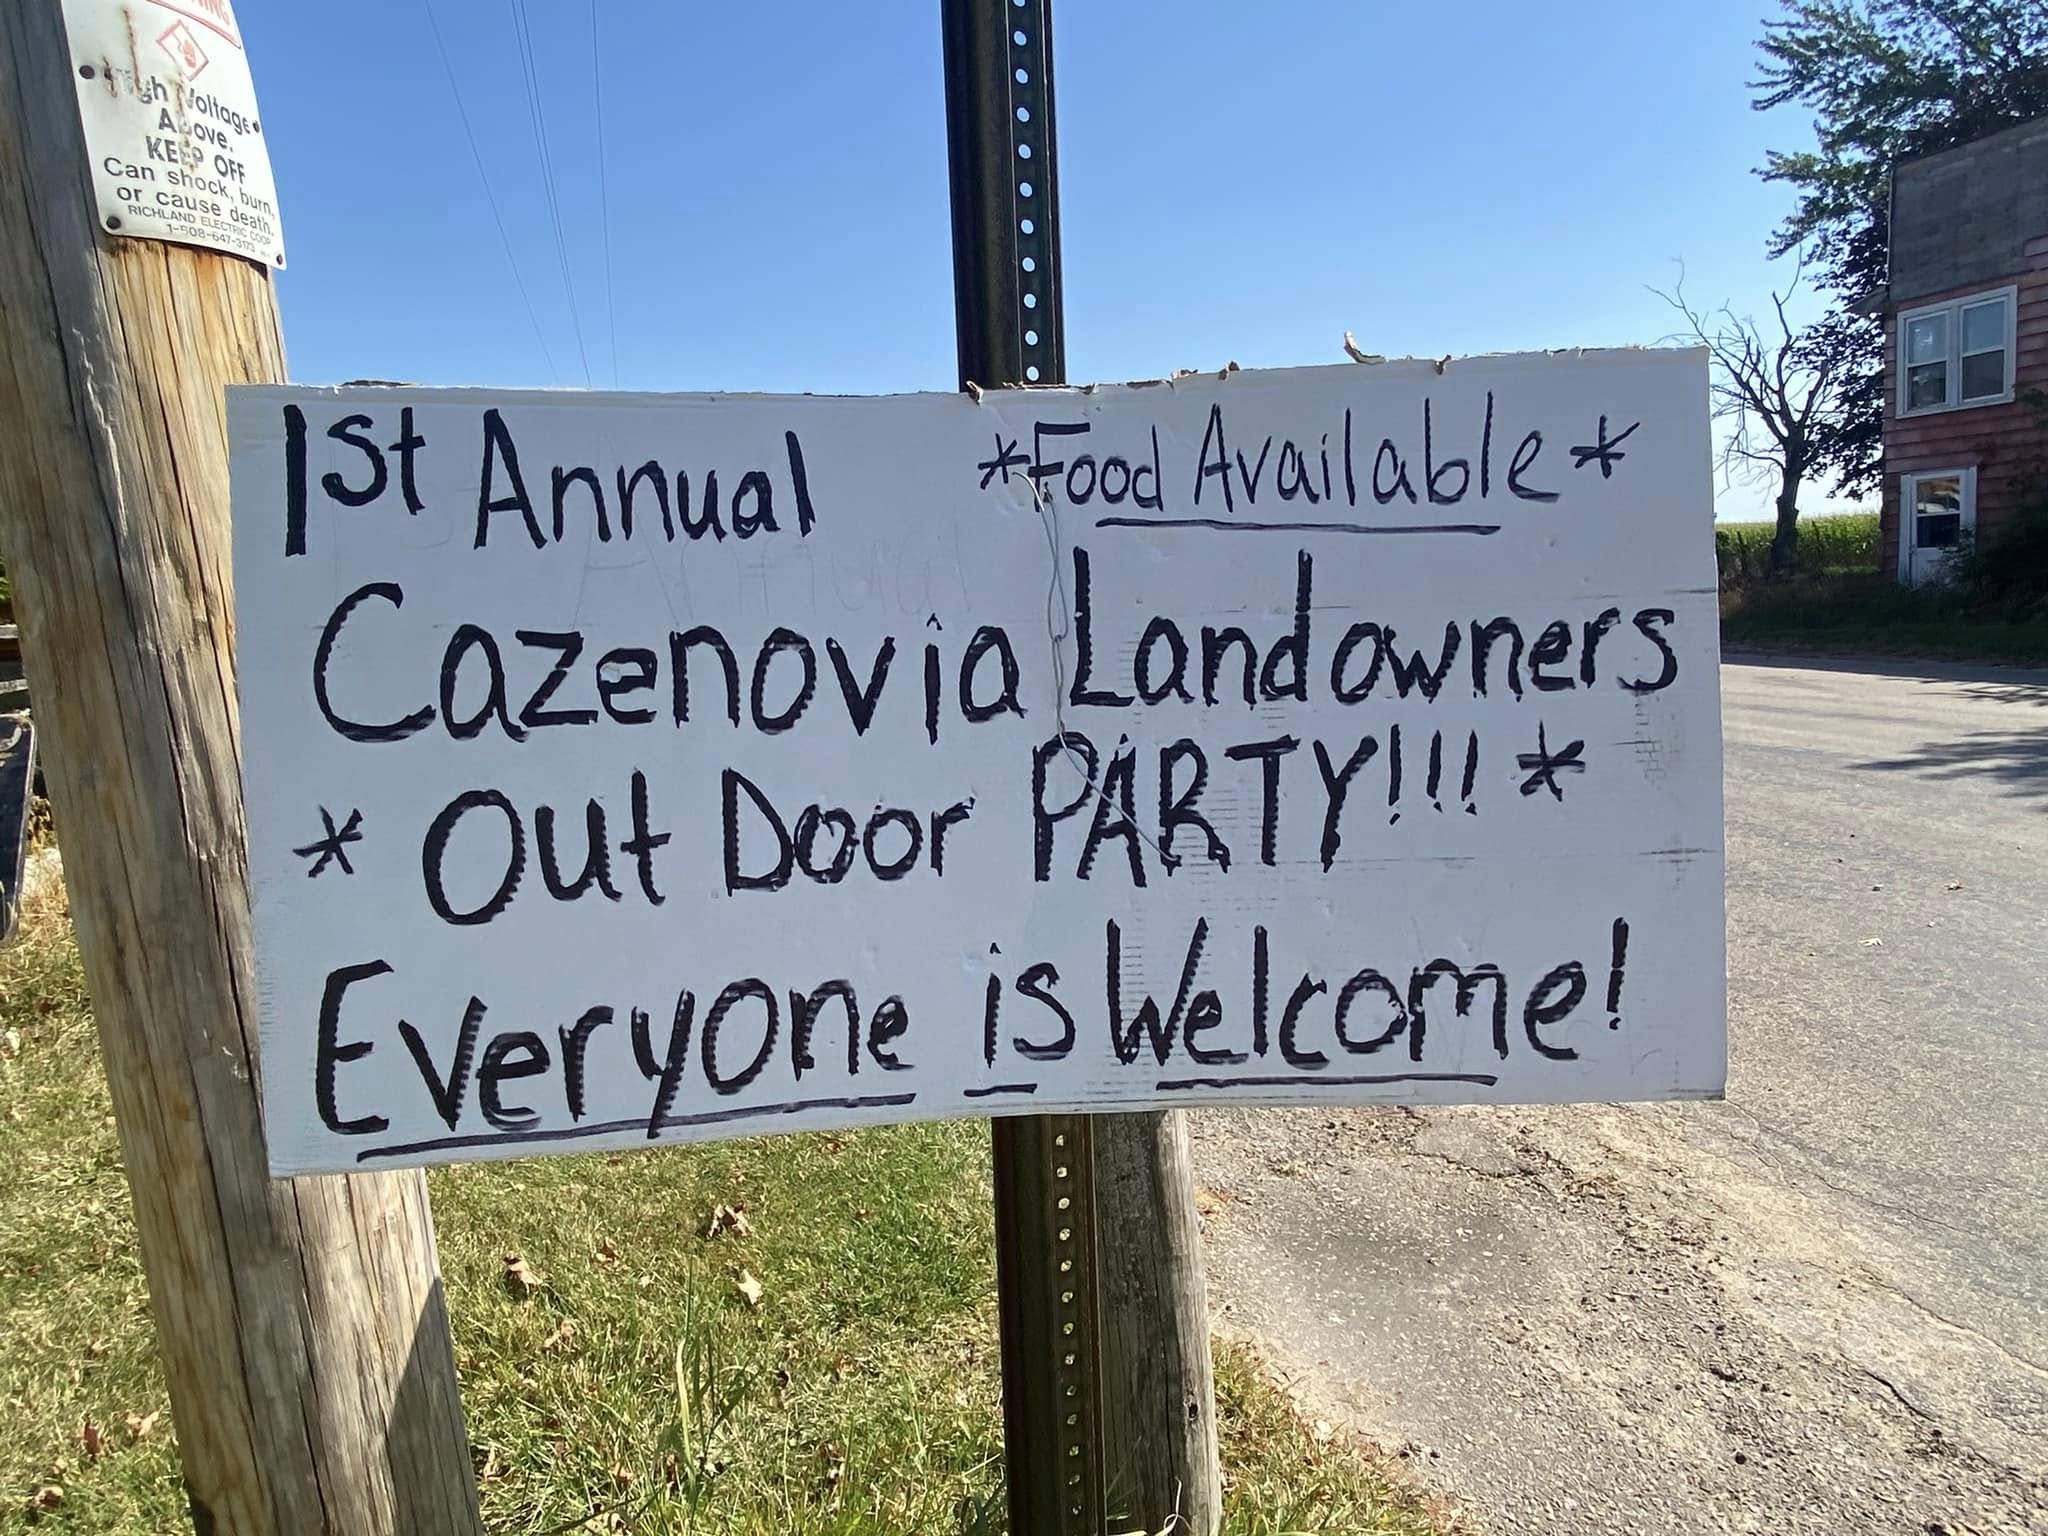 High Voltage
Above.
KEEP OFF
Can shock, burn,
or cause death.
RICHLAND ELECTRIC COOP
1-508-647-3173
1st Annual *Food Available*
Cazenovia Landowners
* Out Door PARTY!!! *
Everyone is Welcome!